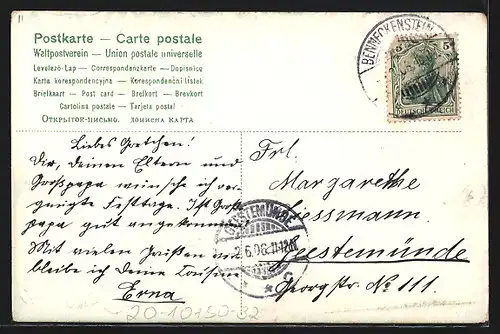 Postkarte — Carte postale
Weltpostverein — Union postale universelle
Levelező-Lap — Correspondenzkarte — Dopisnice
Karta korespondencyjna — Korespondenční lístek
Brielkaart — Post card — Brefkort — Brevkort
Cartolina postale — Tarjeta postal
ОТКРЫТОЕ ПИСЬМО. ДОПИСНА КАРТА
BENNECKENSTEIN
5 5
DEUTSCHES REICH
Liebes Gretchen!
Dir, deinen Eltern und
Grosspapa wünsche ich ver-
gnügte Festtage. Ist Gross-
papa gut angekommen
Mit vielen Grüßen ver-
bleibe ich Deine Cousine
Erna
Frl.
Margarethe
Geestemünde
Georgstr. No 111.
GEESTEMÜNDE
6.06. 11-12
* c
20-10150-32